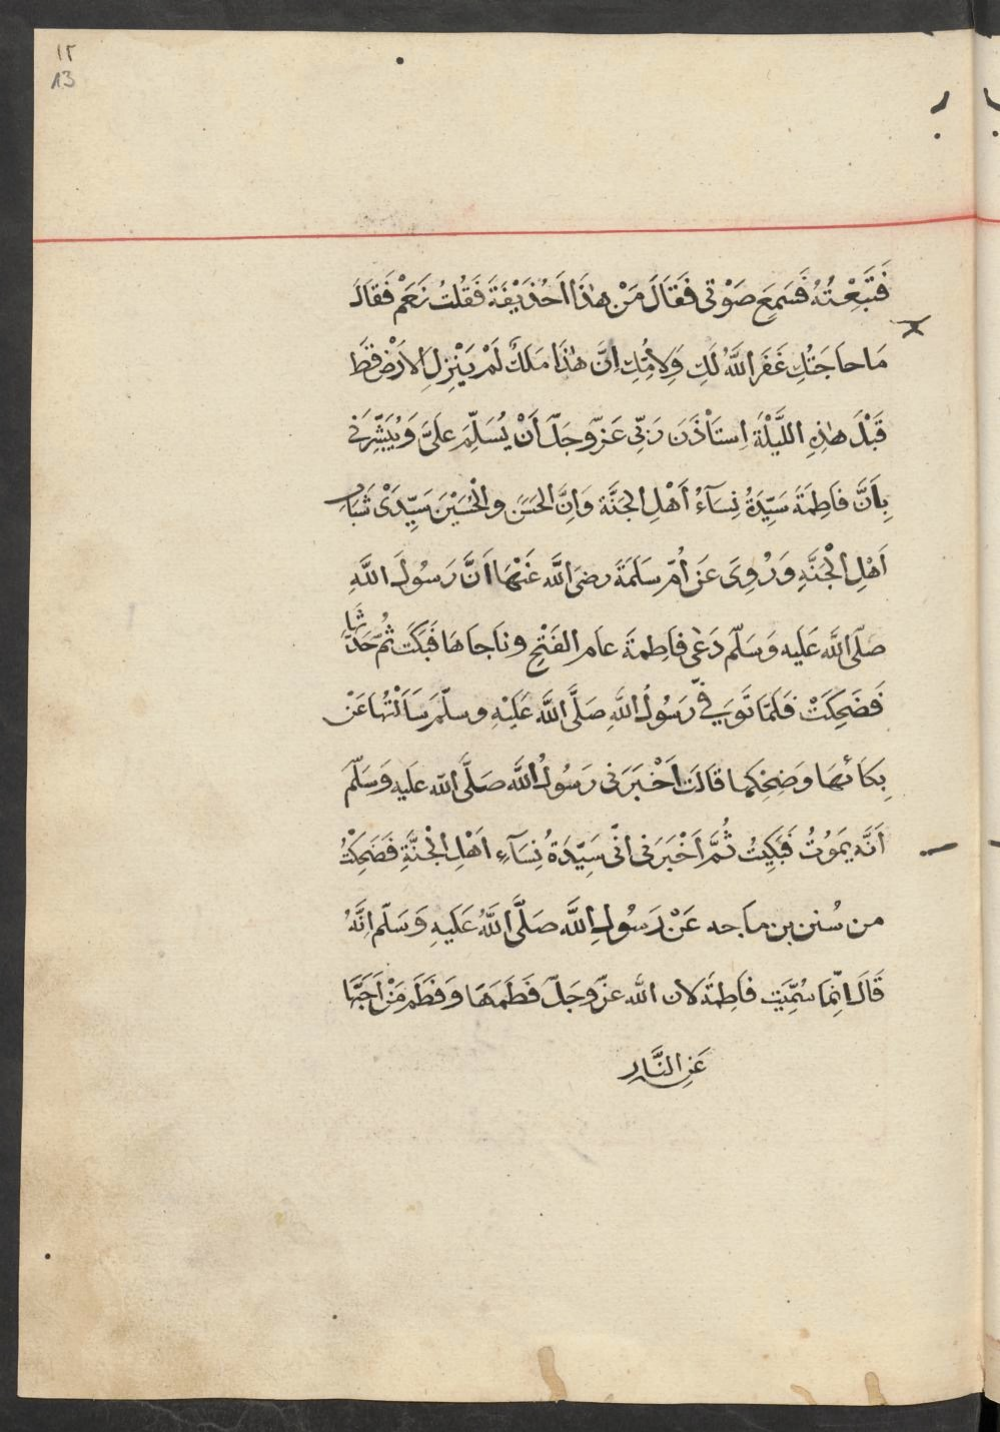 ١٢
13
فَتَبِعْتُهُ فَسَمِعَ صَوْتى فَقَالَ مَنْ هٰذَا اَحُذَيْفَةَ فَقُلتُ نَعَمْ فَقَالَ
مَا حاَجَتُكِ غَفَرَ اللّٰهُ لَكِ وَلاِمُّكِ اِنَّ هٰذَا مَلَكٌ لَمْ يَنْزِلِ الاَرْضَ قَطّ
قَبْلَ هٰذِهِ اللَّيْلَةَ اِستَاْذَنَ رَبّى عَزّوجَلّ اَنْ يُسَلِّمَ عَلىَّ وَيُبَشِّرَنى
بِاَنَّ فاَطِمَةَ سَيِّدَةُ نِسَآءُ اَهْلِ الجَنَّة وَاِنَّ الحَسَنَ والْحُسَيْنَ سَيِّدَىْ شَبَابِ
اَهْلِ الْجَنَّةِ وَرُوِىَ عَنْ اُمّ سَلَمَةَ رضىَ اللّٰه عَنْهَا اَنَّ رَسُولَ اللَّهِ
صَلّى اللَّه عَليه وَسَلّم دَعٰى فاَطِمةَ عَام الفَتْحِ وناَجاَهَا فَبَكَت ثُمّ حَدّثَهَا
فَضَحِكَتْ فَلَمّا تَوَفّى رَسُولُ اللَّهِ صَلَّى اللَّه عَلَيْهِ وسلّم سَاَلْتُهَا عَنْ
بِكاَئهَا وَضِحْكِهَا قَالَت اَخْبَرَنى رَسُولُ اللَّه صَلَّى اللّه عَلَيهِ وَسَلّمَ
اَنَّه يَمَوُتُ فَبَكَيْتُ ثُمَّ اَخْبَرَنى اَنّى سَيِّدَةُ نِسَآءِ اَهْلِ الْجَنَّةِ فَضَحِكْتُ
من سُنن بن مَاجه عَنْ رَسُولِ اللَّه صَلَّى اللَّهُ عَلَيهِ وَسَلّم اِنَّهُ
قَالَ اِنّمَا سُمِّيَت فاَطِمَةَ لان اللّه عزّوجَلّ فَطَمَهَا وَفَطَمَ مَنْ اَحَبَّهَا
عَنِ النَّارِ